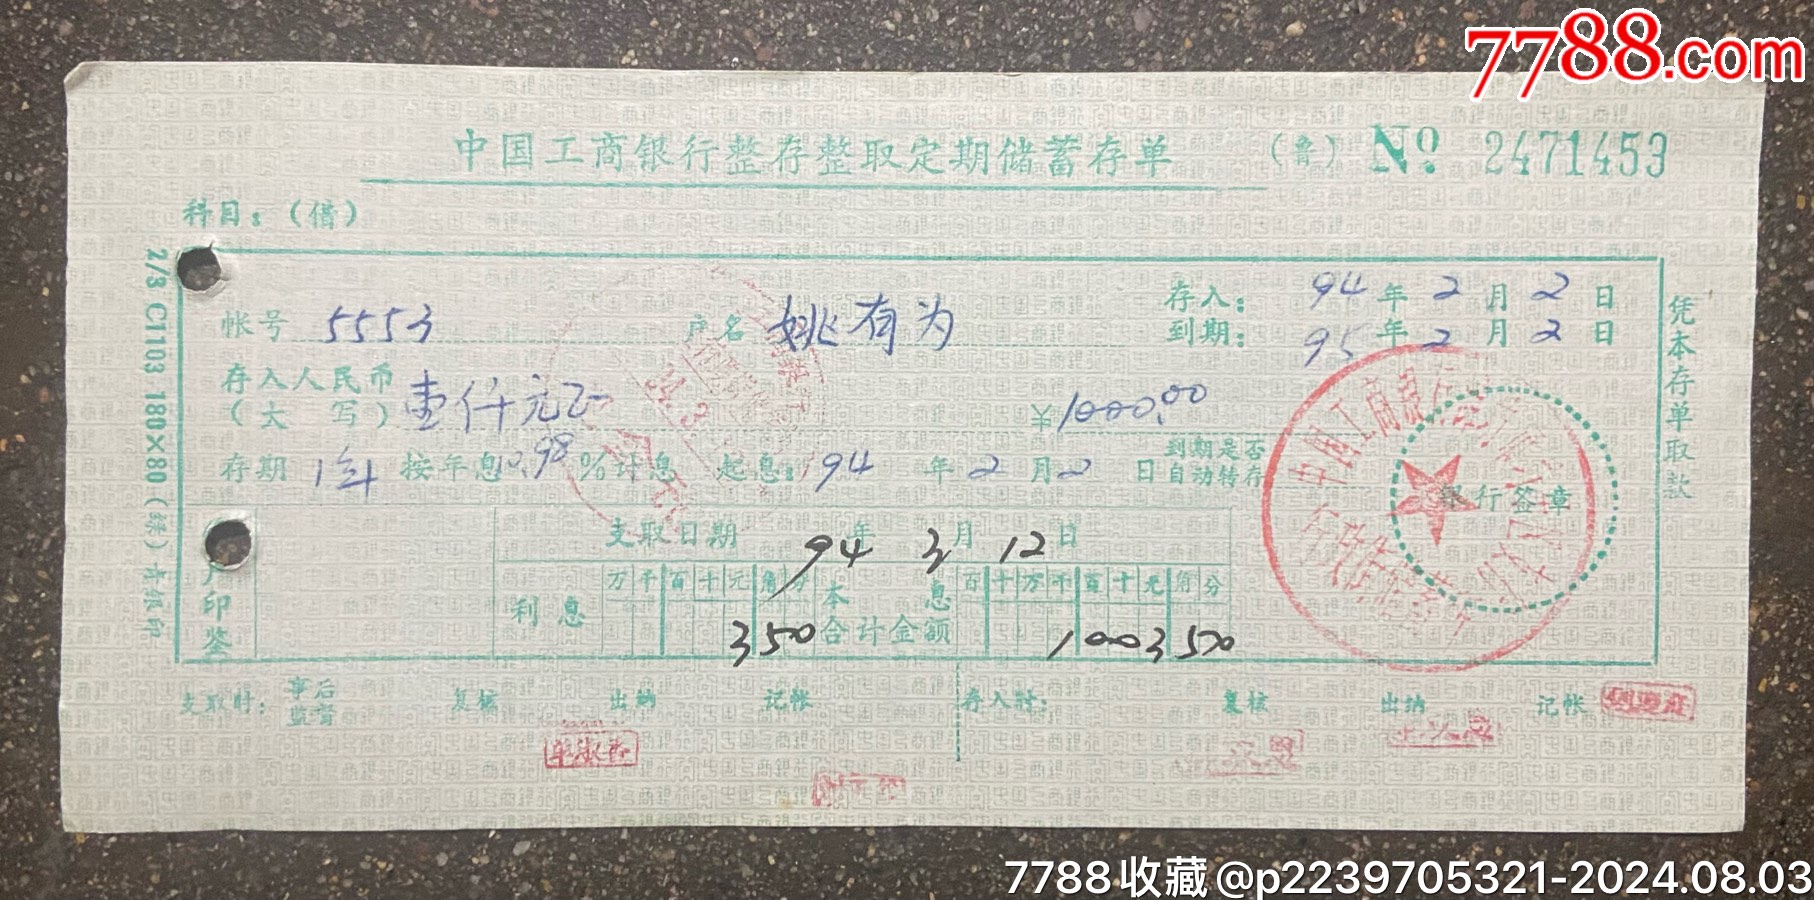 7788.com
中国工商银行整存整取定期储蓄存单 (鲁) № 2471453
科目：（借）
帐号 5553 户名 姚有为 存入： 94 年 2 月 2 日
到期： 95 年 2 月 2 日
存入人民币（大写） 壹仟元正 ￥1000.00
存期 1年 按年息10.98%计息 起息： 94 年 2 月 2 日 到期是否自动转存
银行签章
支取日期 94 年 3 月 12 日
户印鉴
利息 万千百十元角分 350 本息合计金额 百十万千百十元角分 100350
支取时： 事后监督 复核 出纳 记帐 存入时： 复核 出纳 记帐
凭本存单取款
2/3 C1103 180×80
7788收藏@p2239705321-2024.08.03